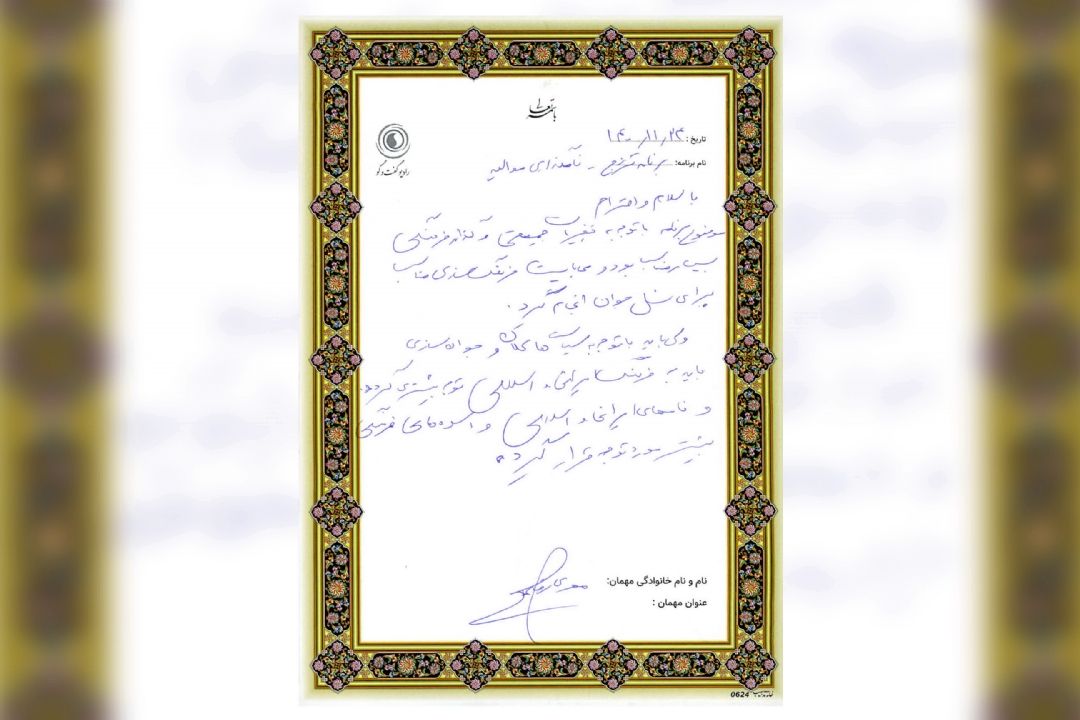 باسمه تعالی
تاریخ: ۱۴۰۰/۱۱/۲۴
رادیو گفت و گو
نام برنامه: برنامه - نامگذاری موالید
با سلام و احترام
موضوع برنامه با توجه به تغییرات جمعیتی و گذار فرهنگی
بسیار مناسب بود و می بایست فرهنگ سازی مناسب
برای نسل جوان انجام گیرد.
ولی باید با توجه به سیاست های کلان و جوان سازی
باید به فرهنگ ایرانی، اسلامی توجه بیشتری گردد.
و نام های ایرانی و اسلامی و اسوه های فرهنگی
بیشتر مورد توجه قرار گیرد.
نام و نام خانوادگی مهمان:
عنوان مهمان:
0624